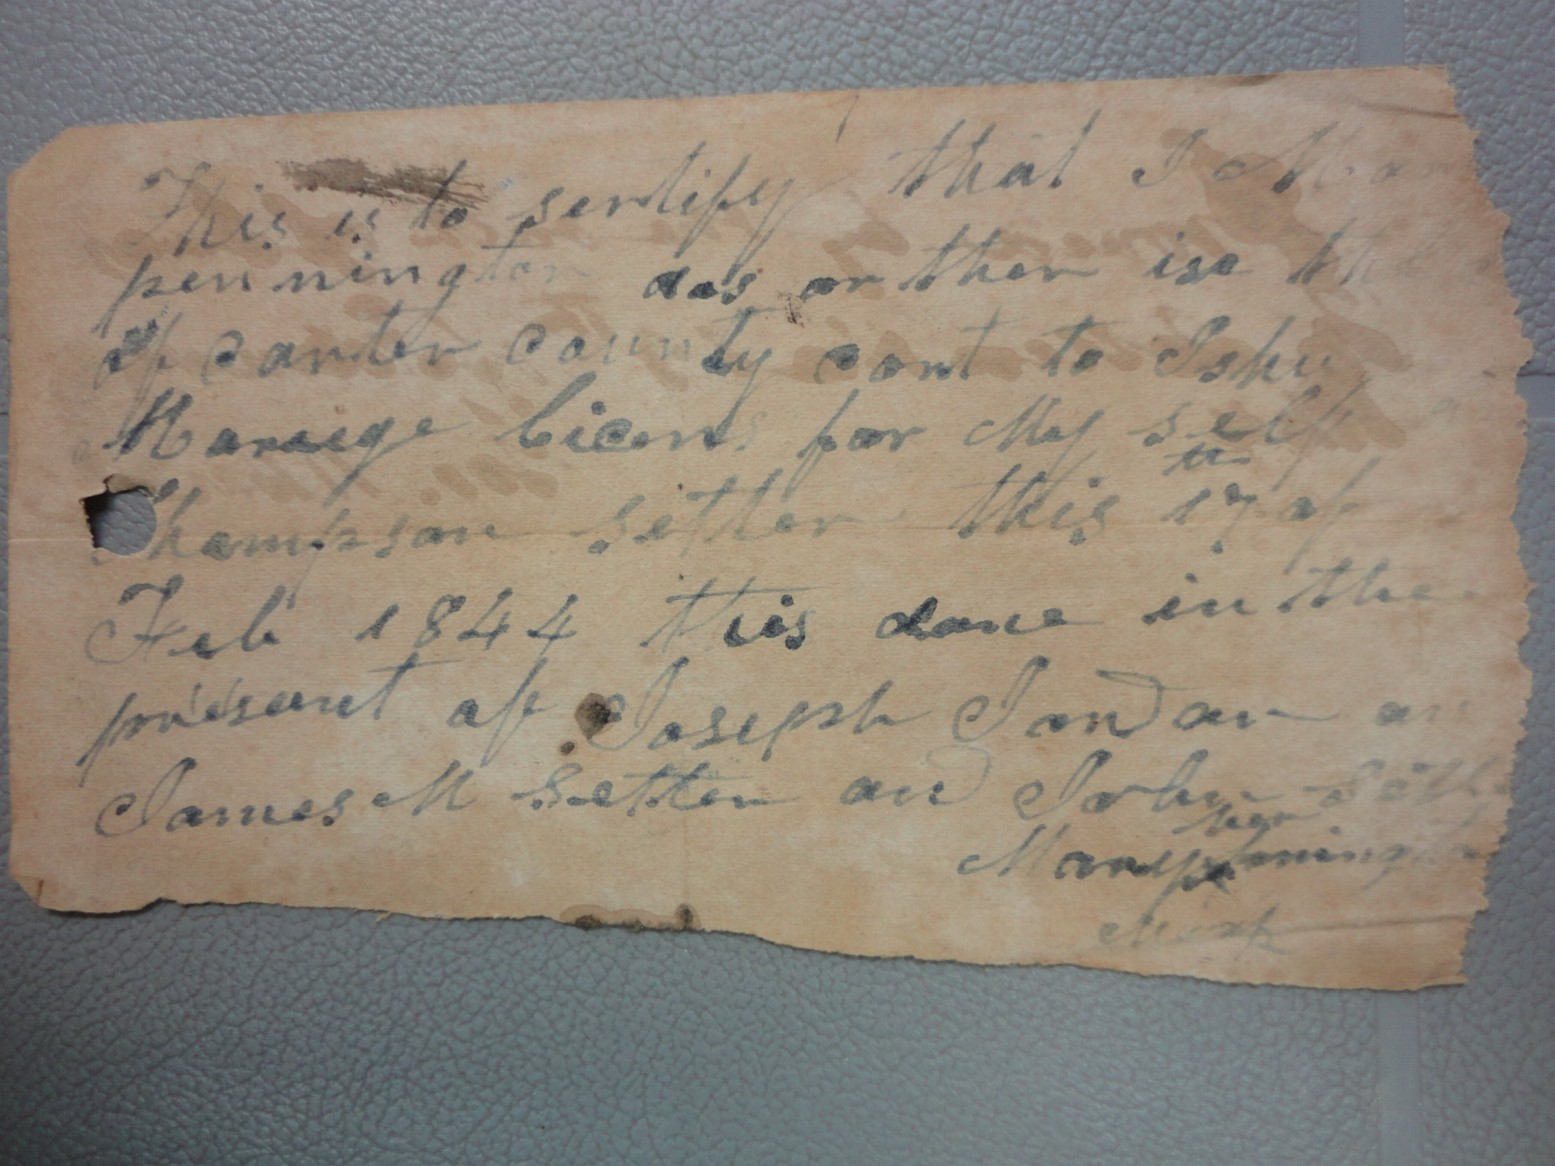 This is to sertify that I Mar
pennington das or ther ise the
of carter county cort to Ishu
Marege licens for My self
Thompson setter this 17 th of
Feb 1844 this done in the
present of Joseph Jordan an
James M setter and John sett
her
Mary pennington
Mark